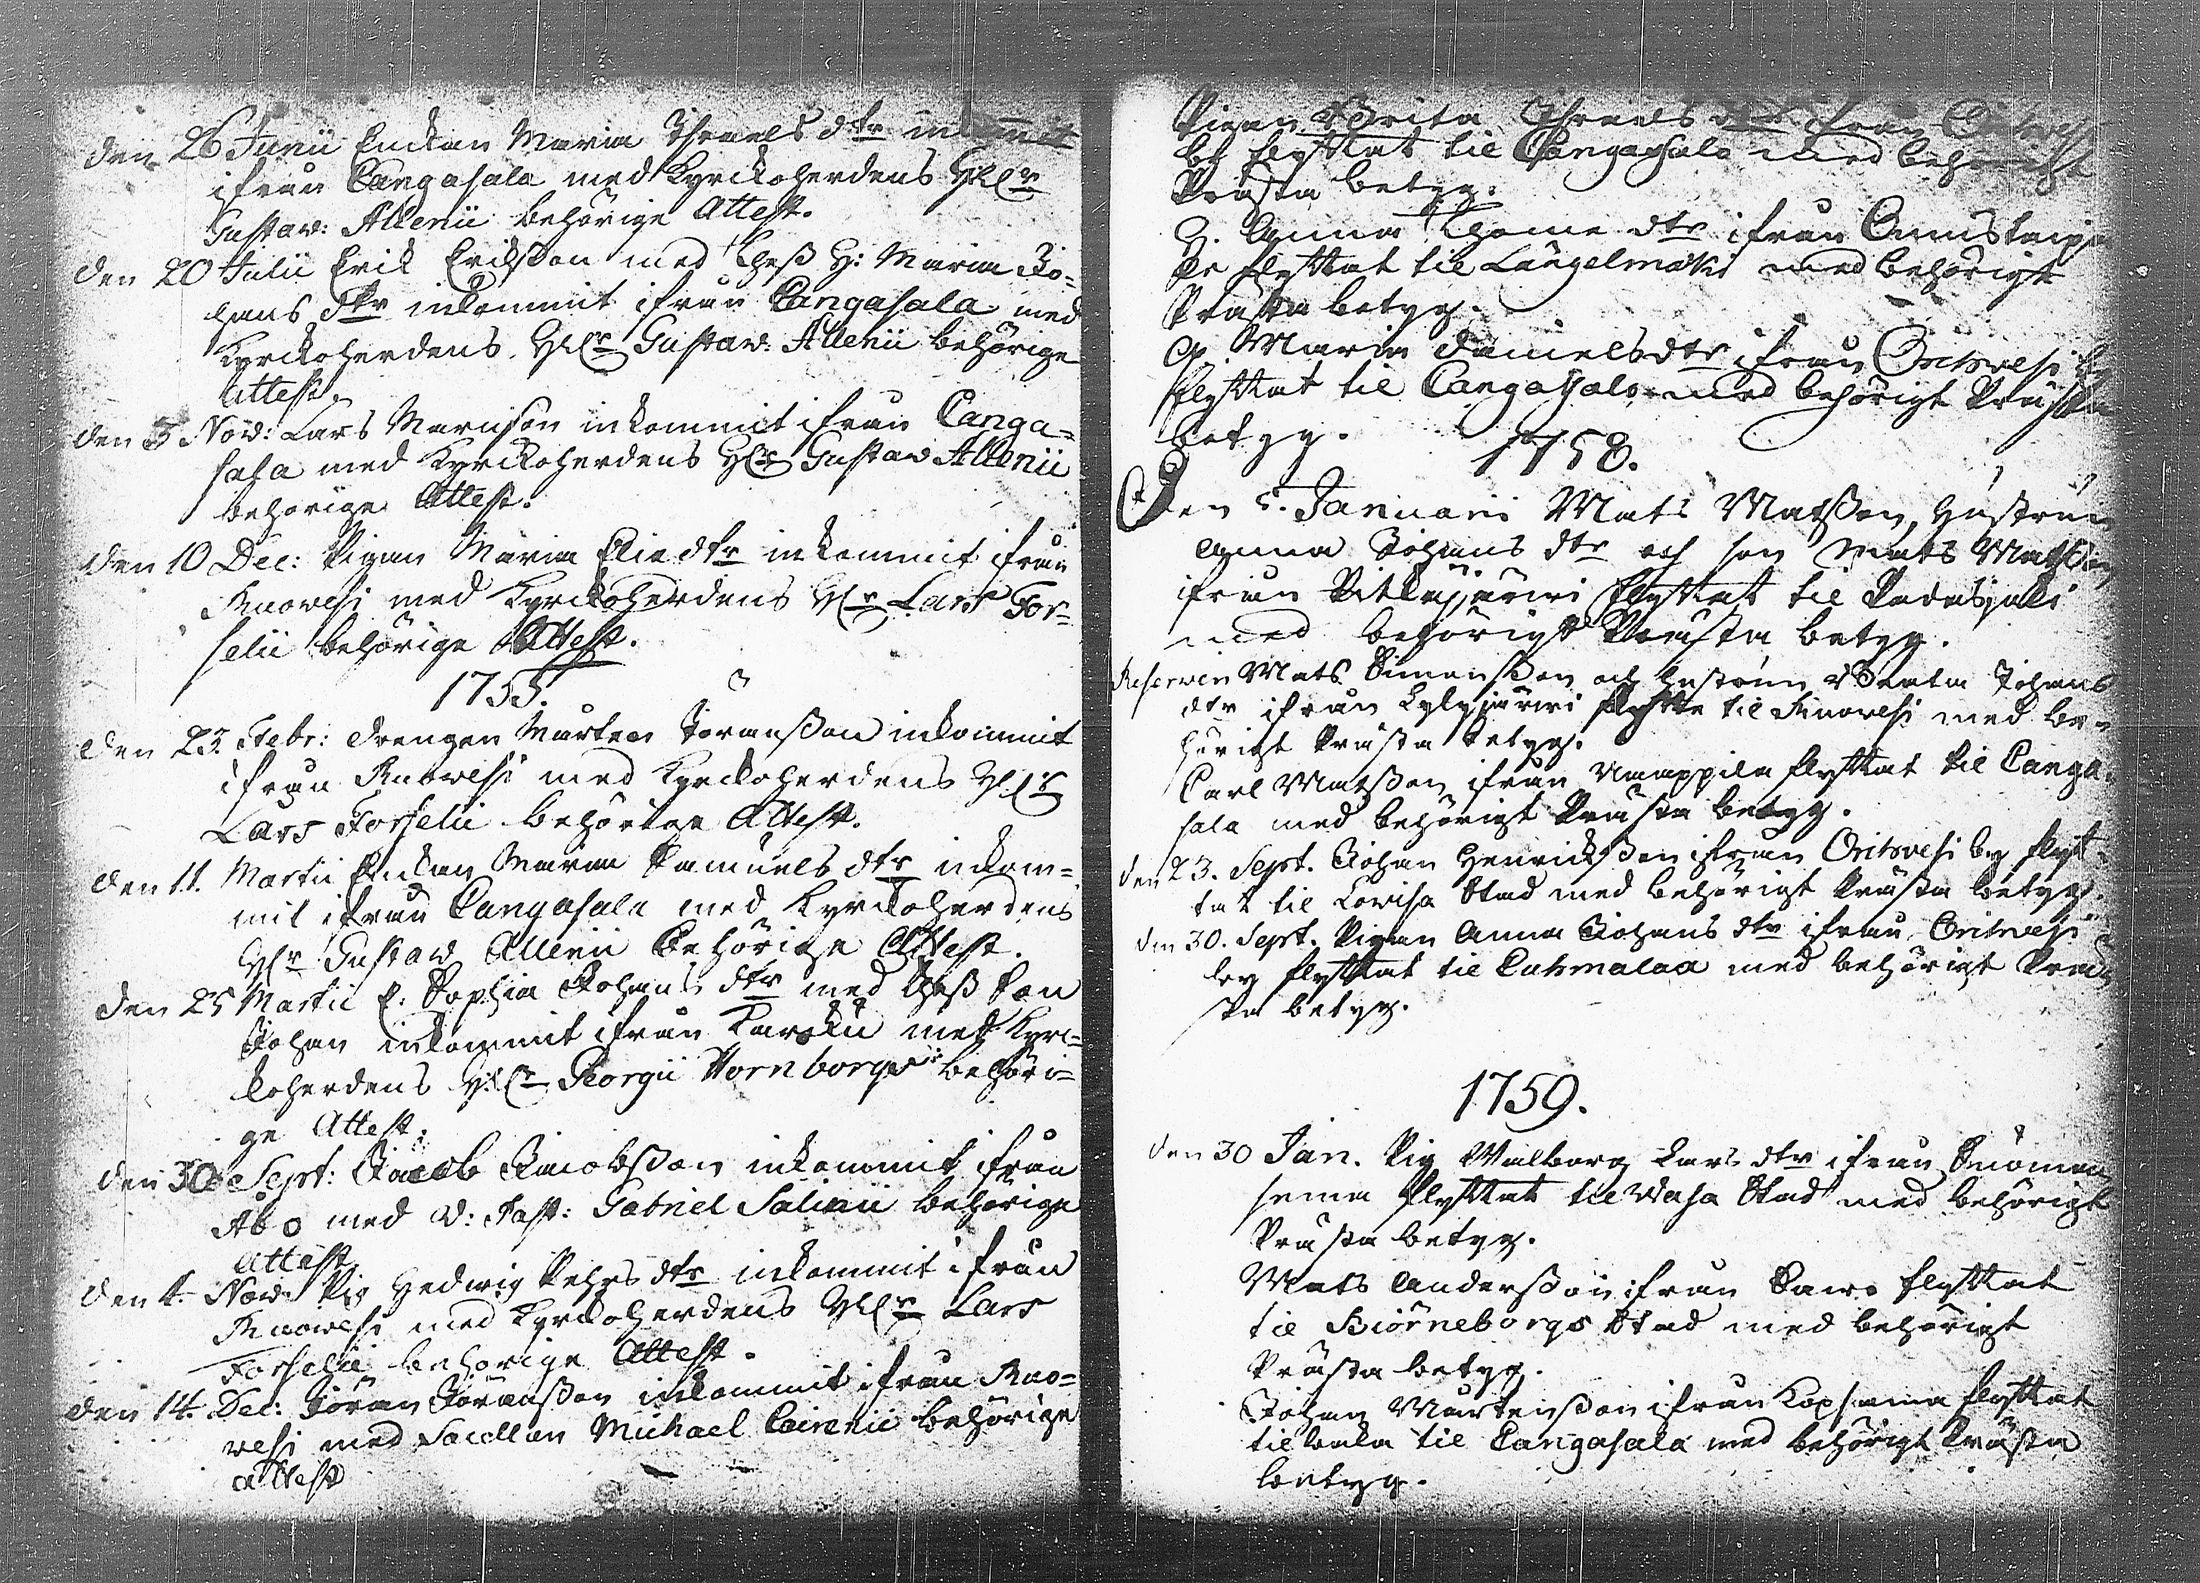 den 26 Junii Enckan Maria Thomasdtr inkommit
ifrån Cangasala med Kyrckoherdens Hl:r
Gustav: Allenii behörige Attest.
den 20 Julii Erik Eriksson med thess H: Maria Jo-
hans dtr inkommit ifrån Cangasala med
Kyrckoherdens Hl:r Gustav: Allenii behörige
Attest.
den 3 Nov: Lars inkommit ifrån Canga-
sala med Kyrckoherdens Hl:r Gustav Allenii
behörige Attest.
den 10 Dec: Pigan Maria Eliædtr inkommit ifrån
Ruovesi med Kyrckoherdens Hl:r Lars For-
selii behörige Attest.
1755.
den 23. Febr: drengen Mårten Göransson inkommit
ifrån Ruovesi med Kyrckoherdens Hl:r
Lars Forselii behörige Attest.
den 11. Martii Enckan Maria Samuels dtr inkom-
mit ifrån Cangasala med Kyrckoherdens
Hl:r Gustav Allenii behörige Attest.
den 25 Martii E. Sophia Johans dtr med thess Son
Johan inkommit ifrån Karcku med Kyrc-
koherdens Hl:r Georgii Hornborgs behöri-
ge Attest.
den 30 Sept: Jacob Jacobsson inkommit ifrån
Åbo med V: Past: Gabriel Salinii behörige
Attest.
den 4. Nov: Pig Hedwig Pehrs dtr inkommit ifrån
Ruovesi med Kyrckoherdens Hl:r Lars
Forselii behörige Attest.
den 14. Dec: Jöran Jöransson inkommit ifrån Ruo-
vesi med Sacellan Michael behörige
attest
Pigan Brita dtr ifrån Oritvesi
by flyttat til Cangasala med behörigt
Prästa betyg.
H. Anna Thome dtr ifrån
flyttat til Längelmäki med behörigt
Prästa betyg.
Maria Danielsdtr ifrån Oritvesi by
flyttat til Cangasala med behörigt Prästa
betyg.
1758.
Den 5. Januarii Mats Matsson, Hustrun
Anna Johans dtr och son Mats Matsson
ifrån Pitkäjärwi flyttat til Padasjoki
med behörigt Prästa betyg.
Reserven Mats Simonsson och hustrun Beata Johans
dtr ifrån Kylyjärwi flytte til Ruovesi med be-
hörigt Prästa betyg.
Carl Matsson ifrån flyttat til Canga-
sala med behörigt Prästa betyg.
den 23. Sept. Johan Henricksson ifrån Oritvesi by flyt-
tat til Lovisa Stad med behörigt Prästa betyg.
den 30. Sept. Pigan Anna Johans dtr ifrån Oritvesi
by flyttat til Cuhmalax med behörigt Prä-
sta betyg.
1759.
den 30 Jan. Pig Walborg Lars dtr ifrån Suomen
sema flyttat til Wasa Stad med behörigt
Prästa betyg.
Mats Andersson ifrån flyttat
til Biörneborgs Stad med behörigt
Prästa betyg.
Johan Mårtensson ifrån Kopsama flyttat
tilbaka til Cangasala med behörigt Prästa
betyg.